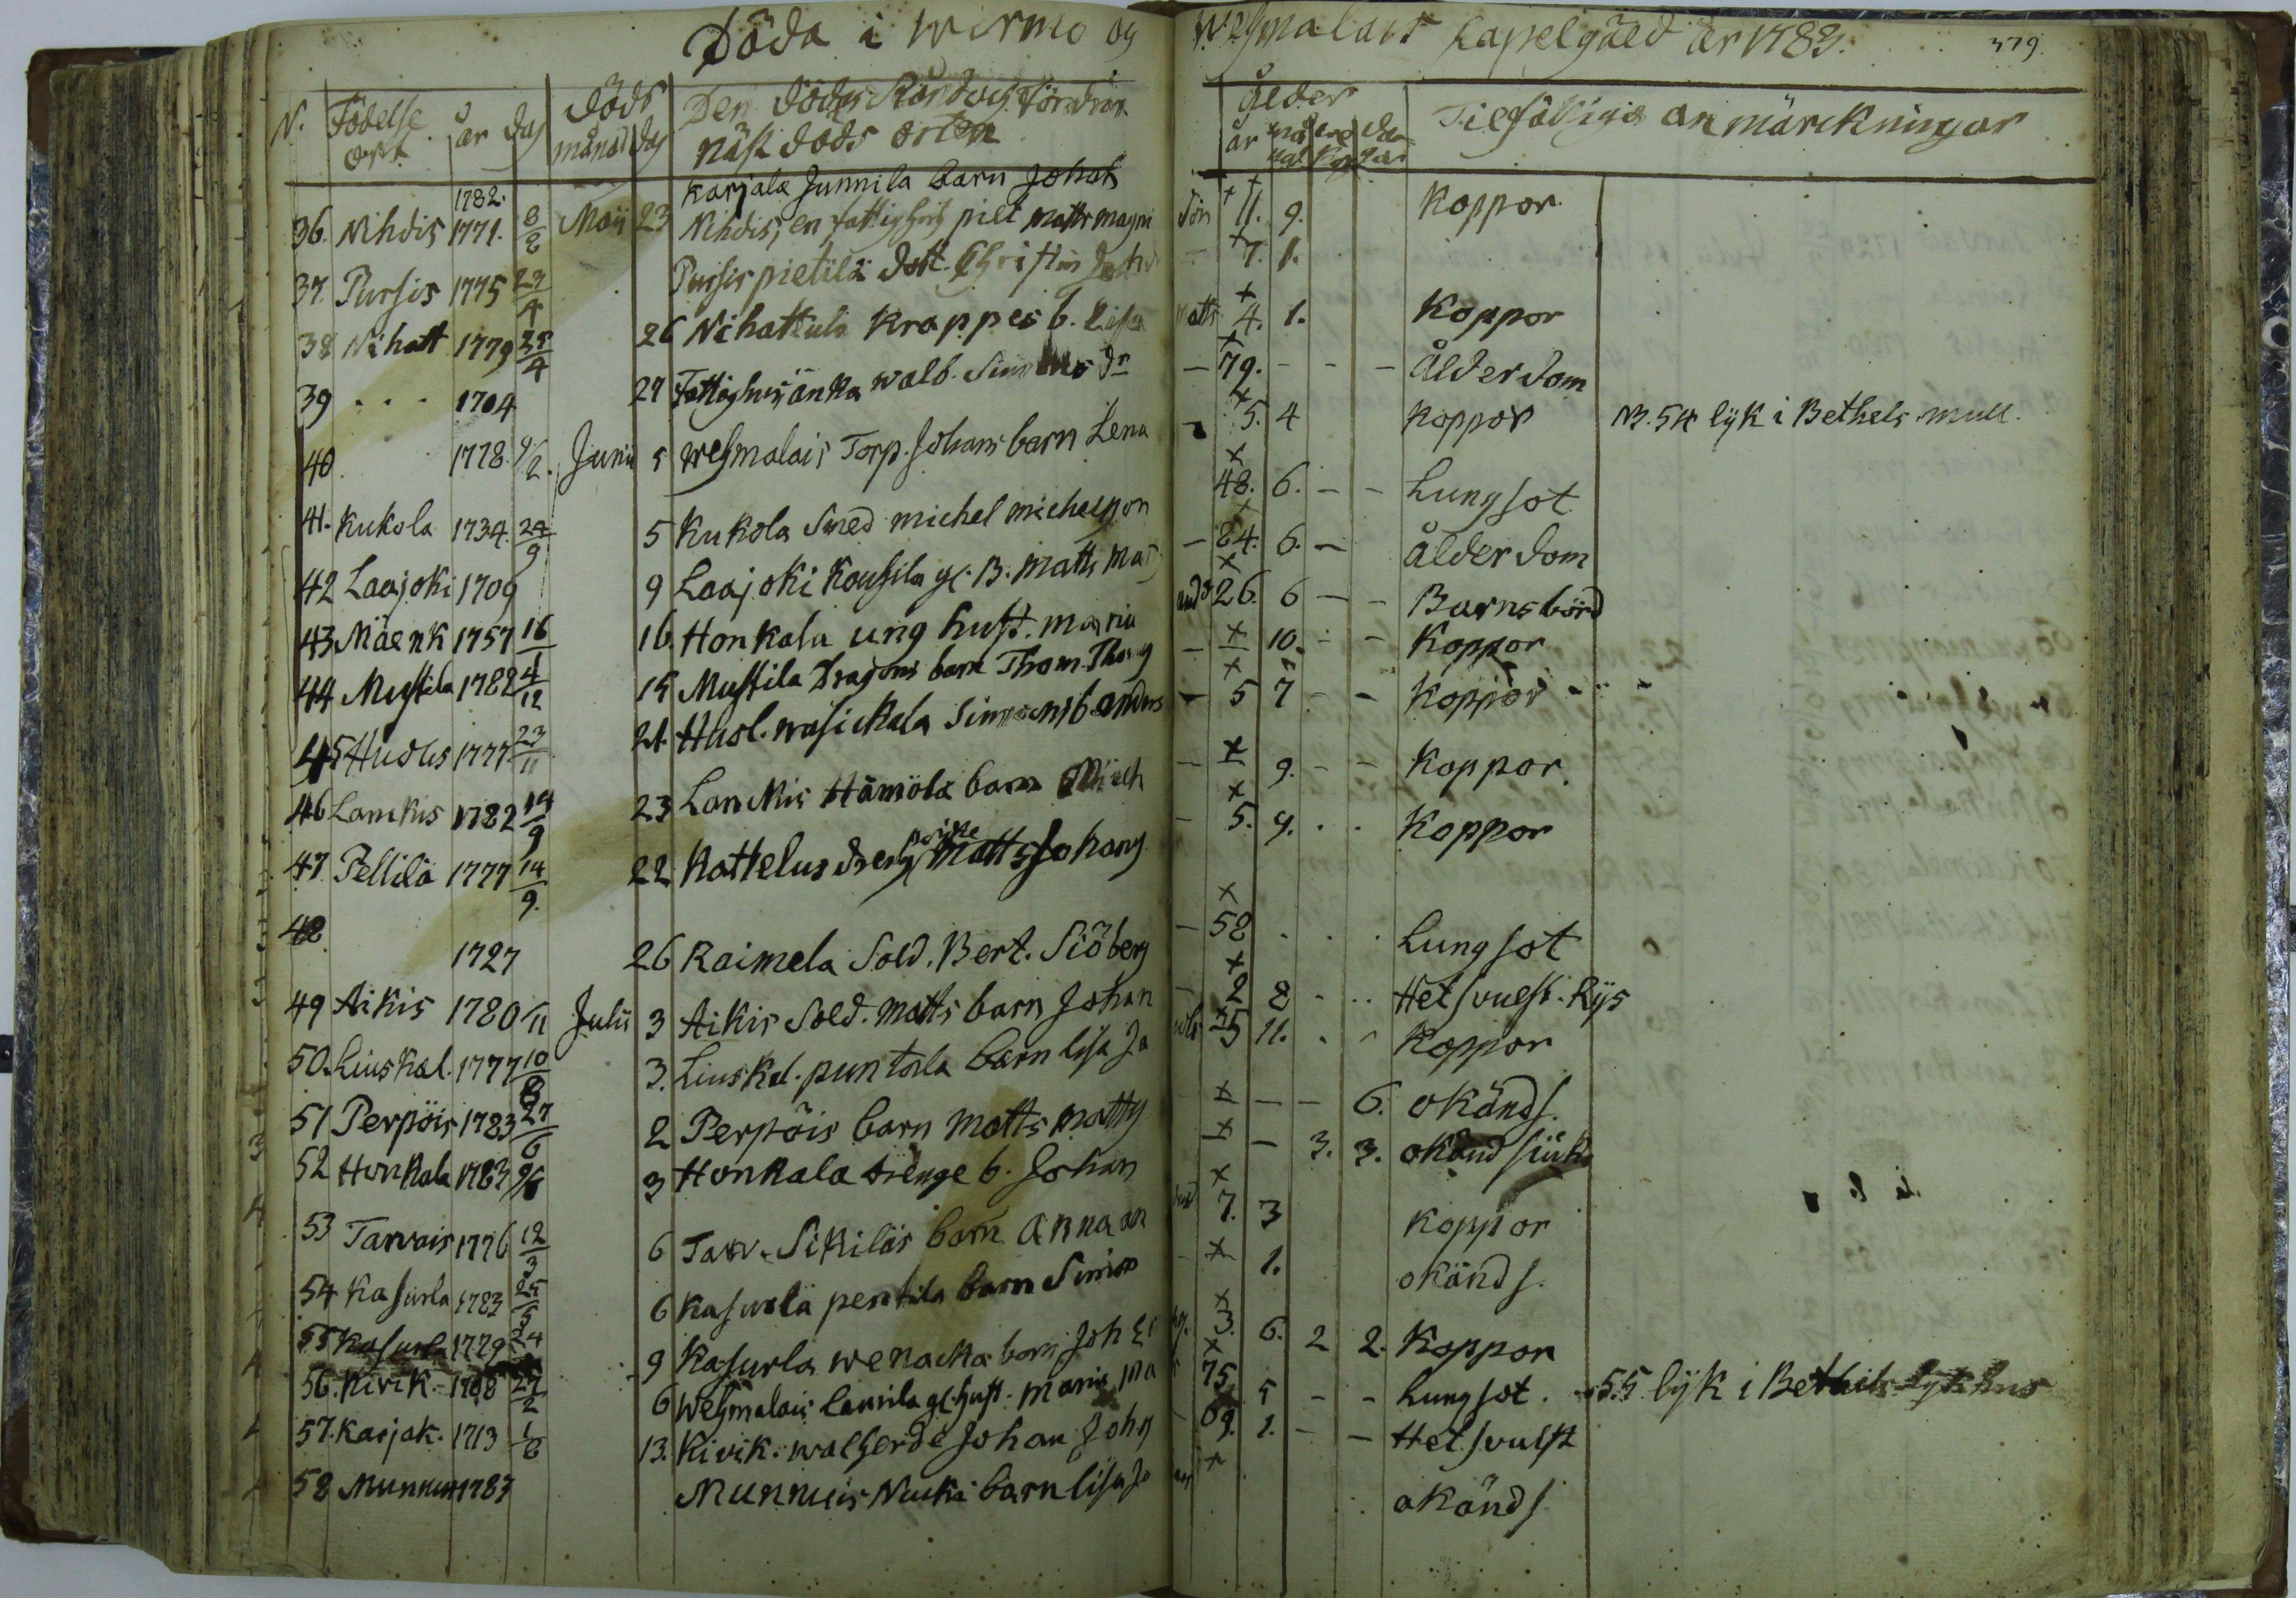 Döda i Wirmo og Wehmalais Kapelgäld år 1783. 379.
N. Födelse ort. år dag Döds månad dag Den Dödas näst döds orten ålder år Tilfällige anmärckningar
1782. Karjala Junnila barn Johan
36. Nihdis 1771. 8/8 Maii 23 Nihdis, en fattighus pilt Matts Magni Son + 11. 9. Koppor
37 Pursis 1775 29/4 Pursis pietilä dott. Christin - + 7. 1.
38 Nihatt 1779 25/4 26 Nihattula Krappes b. Lisa Matts + 4. 1. Koppor
39 . . . 1704 27 Fattighus änka Walb. Simons dr - + 79. - - - ålderdom
40 1778. 9/2. Junii 5 Wehmalais Torp. Johans barn Lena - + 5. 4 Koppor N. 54 lyk i Bethels mull.
41. Kukola 1734. 24/9 5 Kukola Smed Michel Michelson + 48. 6. - - Lungsot
42 Laajoki 1709 9 Laajoki Kousila gl. B. Matts Mat - + 84. 6. - ålderdom
43 Mäenk 1757 16/1 16. Honkala ung hust. Maria And + 26. 6 - - Barnsbörd
44 Mustila 1782 4/12 15 Mustila Dragons barn Thom. Thom - + 10. - - Koppor
45 Huolis 1777 23/11 21. Huol. Wasickala Simons b Anders - + 5 7 - - Koppor
46 Lanckis 1782 14/9 23 Lanckis Hämölä barn Mich - + 9. - - Koppor
47 Pellilä 1777 14/9. 22 Kattelus dreng Matts Johans - + 5. 9. . . Koppor
48 1727 26 Raimela Sold. Bert. Siöberg - + 58 . . . Lungsot
49 Aikis 1780 /11 Julii 3 Aikis Sold. Matts barn Johan - + 2 8 - .. Hetsvulst. Rys
50. Liuskal. 1777 10/8 3. Liuskal. puntola barn Lisa Ja + 5 11. . . Koppor
51 Perpöis 1783 27/6 2 Perpöis barn Matts Matts + - - 6. okänd s.
52 Honkala 1783 9/6 3 Honkala drenge b. Johan + - 3. 3. okänd siuk
53 Tarvais 1776 12/3 6 Tarv. Sikiläs barn Anna An + 7. 3 Koppor
54 Kasurla 1783 25/5 6 Kasurla pentila barn Simon - + 1. okänd s.
55 Kasurla 1779 24 9 Kasurla Wenacka barn Joh Er + 3. 6. 2 2. Koppor
56. Kivik. 1708 27/2 6 Wehmalais Lamila gl. hust. Maria Ma + 75 5 - - Lungsot. 55 lyk i Bethels lyk hus
57. Karjak. 1713 1/6 13. Kivik. Walherde Johan Johs - 69. 1. - - Hetsvulst
58 Munnuis 1783 Munnuis Nuuki barn Lisa Jo + okänd s